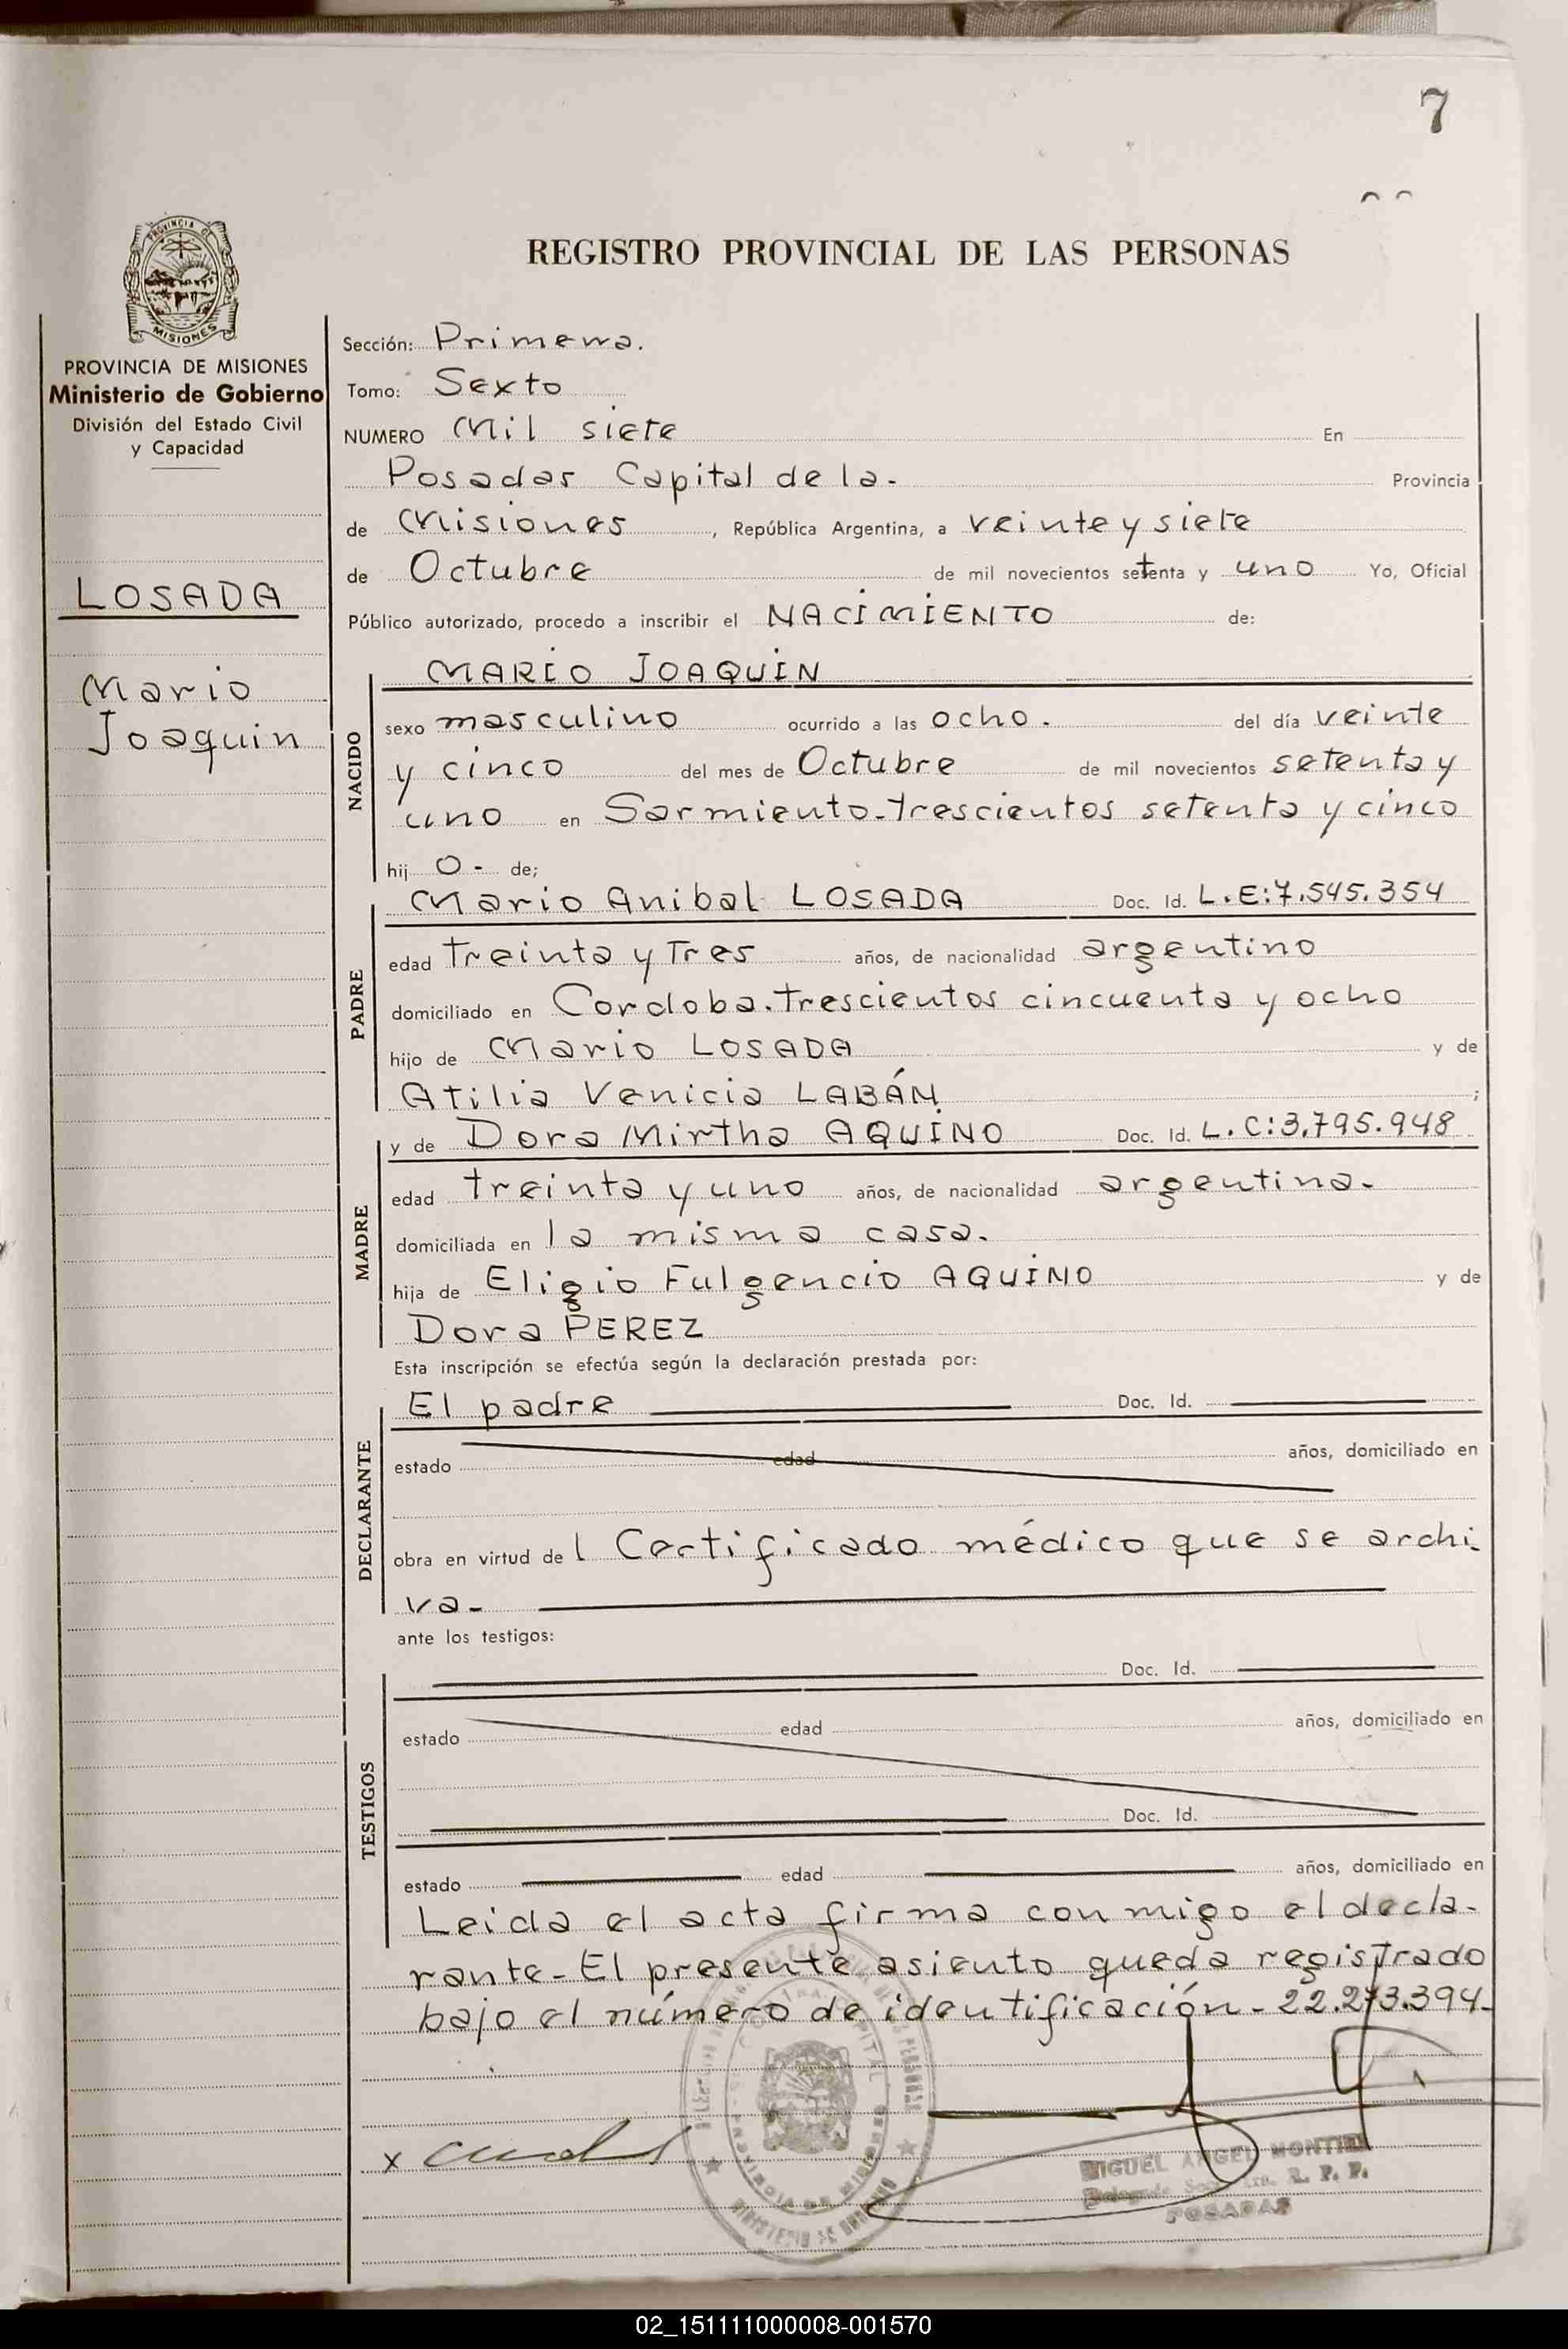 7
REGISTRO PROVINCIAL DE LAS PERSONAS
PROVINCIA DE MISIONES
Ministerio de Gobierno
División del Estado Civil
y Capacidad
LOSADA
Mario
Joaquin
Sección: Primera.
Tomo: Sexto
NUMERO Mil siete En
Posadas Capital de la- Provincia
de Misiones, República Argentina, a veinte y siete
de Octubre de mil novecientos setenta y uno Yo, Oficial
Público autorizado, procedo a inscribir el NACIMIENTO de:
NACIDO
MARIO JOAQUIN
sexo masculino ocurrido a las ocho. del día veinte
y cinco del mes de Octubre de mil novecientos setenta y
uno en Sarmiento-trescientos setenta y cinco
hij o- de;
PADRE
Mario Anibal LOSADA Doc. Id. L.E:7.545.354
edad treinta y tres años, de nacionalidad argentino
domiciliado en Cordoba.trescientos cincuenta y ocho
hijo de Mario LOSADA y de
Atilia Venicia LABÁN;
MADRE
y de Dora Mirtha AQUINO Doc. Id. L.C:3.795.948
edad treinta y uno años, de nacionalidad argentina.
domiciliada en la misma casa.
hija de Eligio Fulgencio AQUINO y de
Dora PEREZ
Esta inscripción se efectúa según la declaración prestada por:
DECLARANTE
El padre Doc. Id.
estado edad años, domiciliado en
obra en virtud de l Certificado médico que se archi-
va-
ante los testigos:
TESTIGOS
Doc. Id.
estado edad años, domiciliado en
Doc. Id.
estado edad años, domiciliado en
Leida el acta firma conmigo el decla-
rante-El presente asiento queda registrado
bajo el número de identificación-22.273.394-
x
MIGUEL ANGEL MONTIEL
R. P. P.
POSADAS
02_151111000008-001570